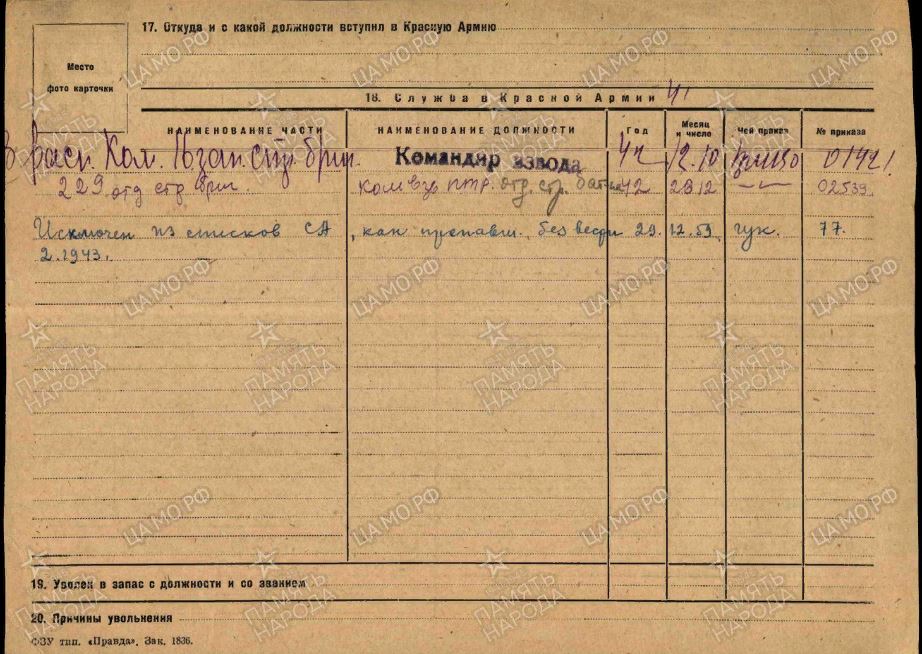 17. Откуда и с какой должности вступил в Красную Армию
Место
фото карточки
18. Служба в Красной Армии
НАИМЕНОВАНИЕ ЧАСТИ
НАИМЕНОВАНИЕ ДОЛЖНОСТИ
ГОД
Месяц
и число
Чей приказ
№ приказа
В расп. Ком. зап. стр. бриг. Командир взвода 42 12.10 01421.
229 отд стр бриг. Ком взв ПТР. отд. стр. бат-на 42 28.12 02539
Исключен из списков СА, как пропавш. без вести 29. 12. 59. гук. 77.
2.1943.
19. Уволен в запас с должности и со званием
20. Причины увольнения
ФЗУ тип. «Правда». Зак. 1836.
ЦАМО.РФ
ПАМЯТЬ
НАРОДА